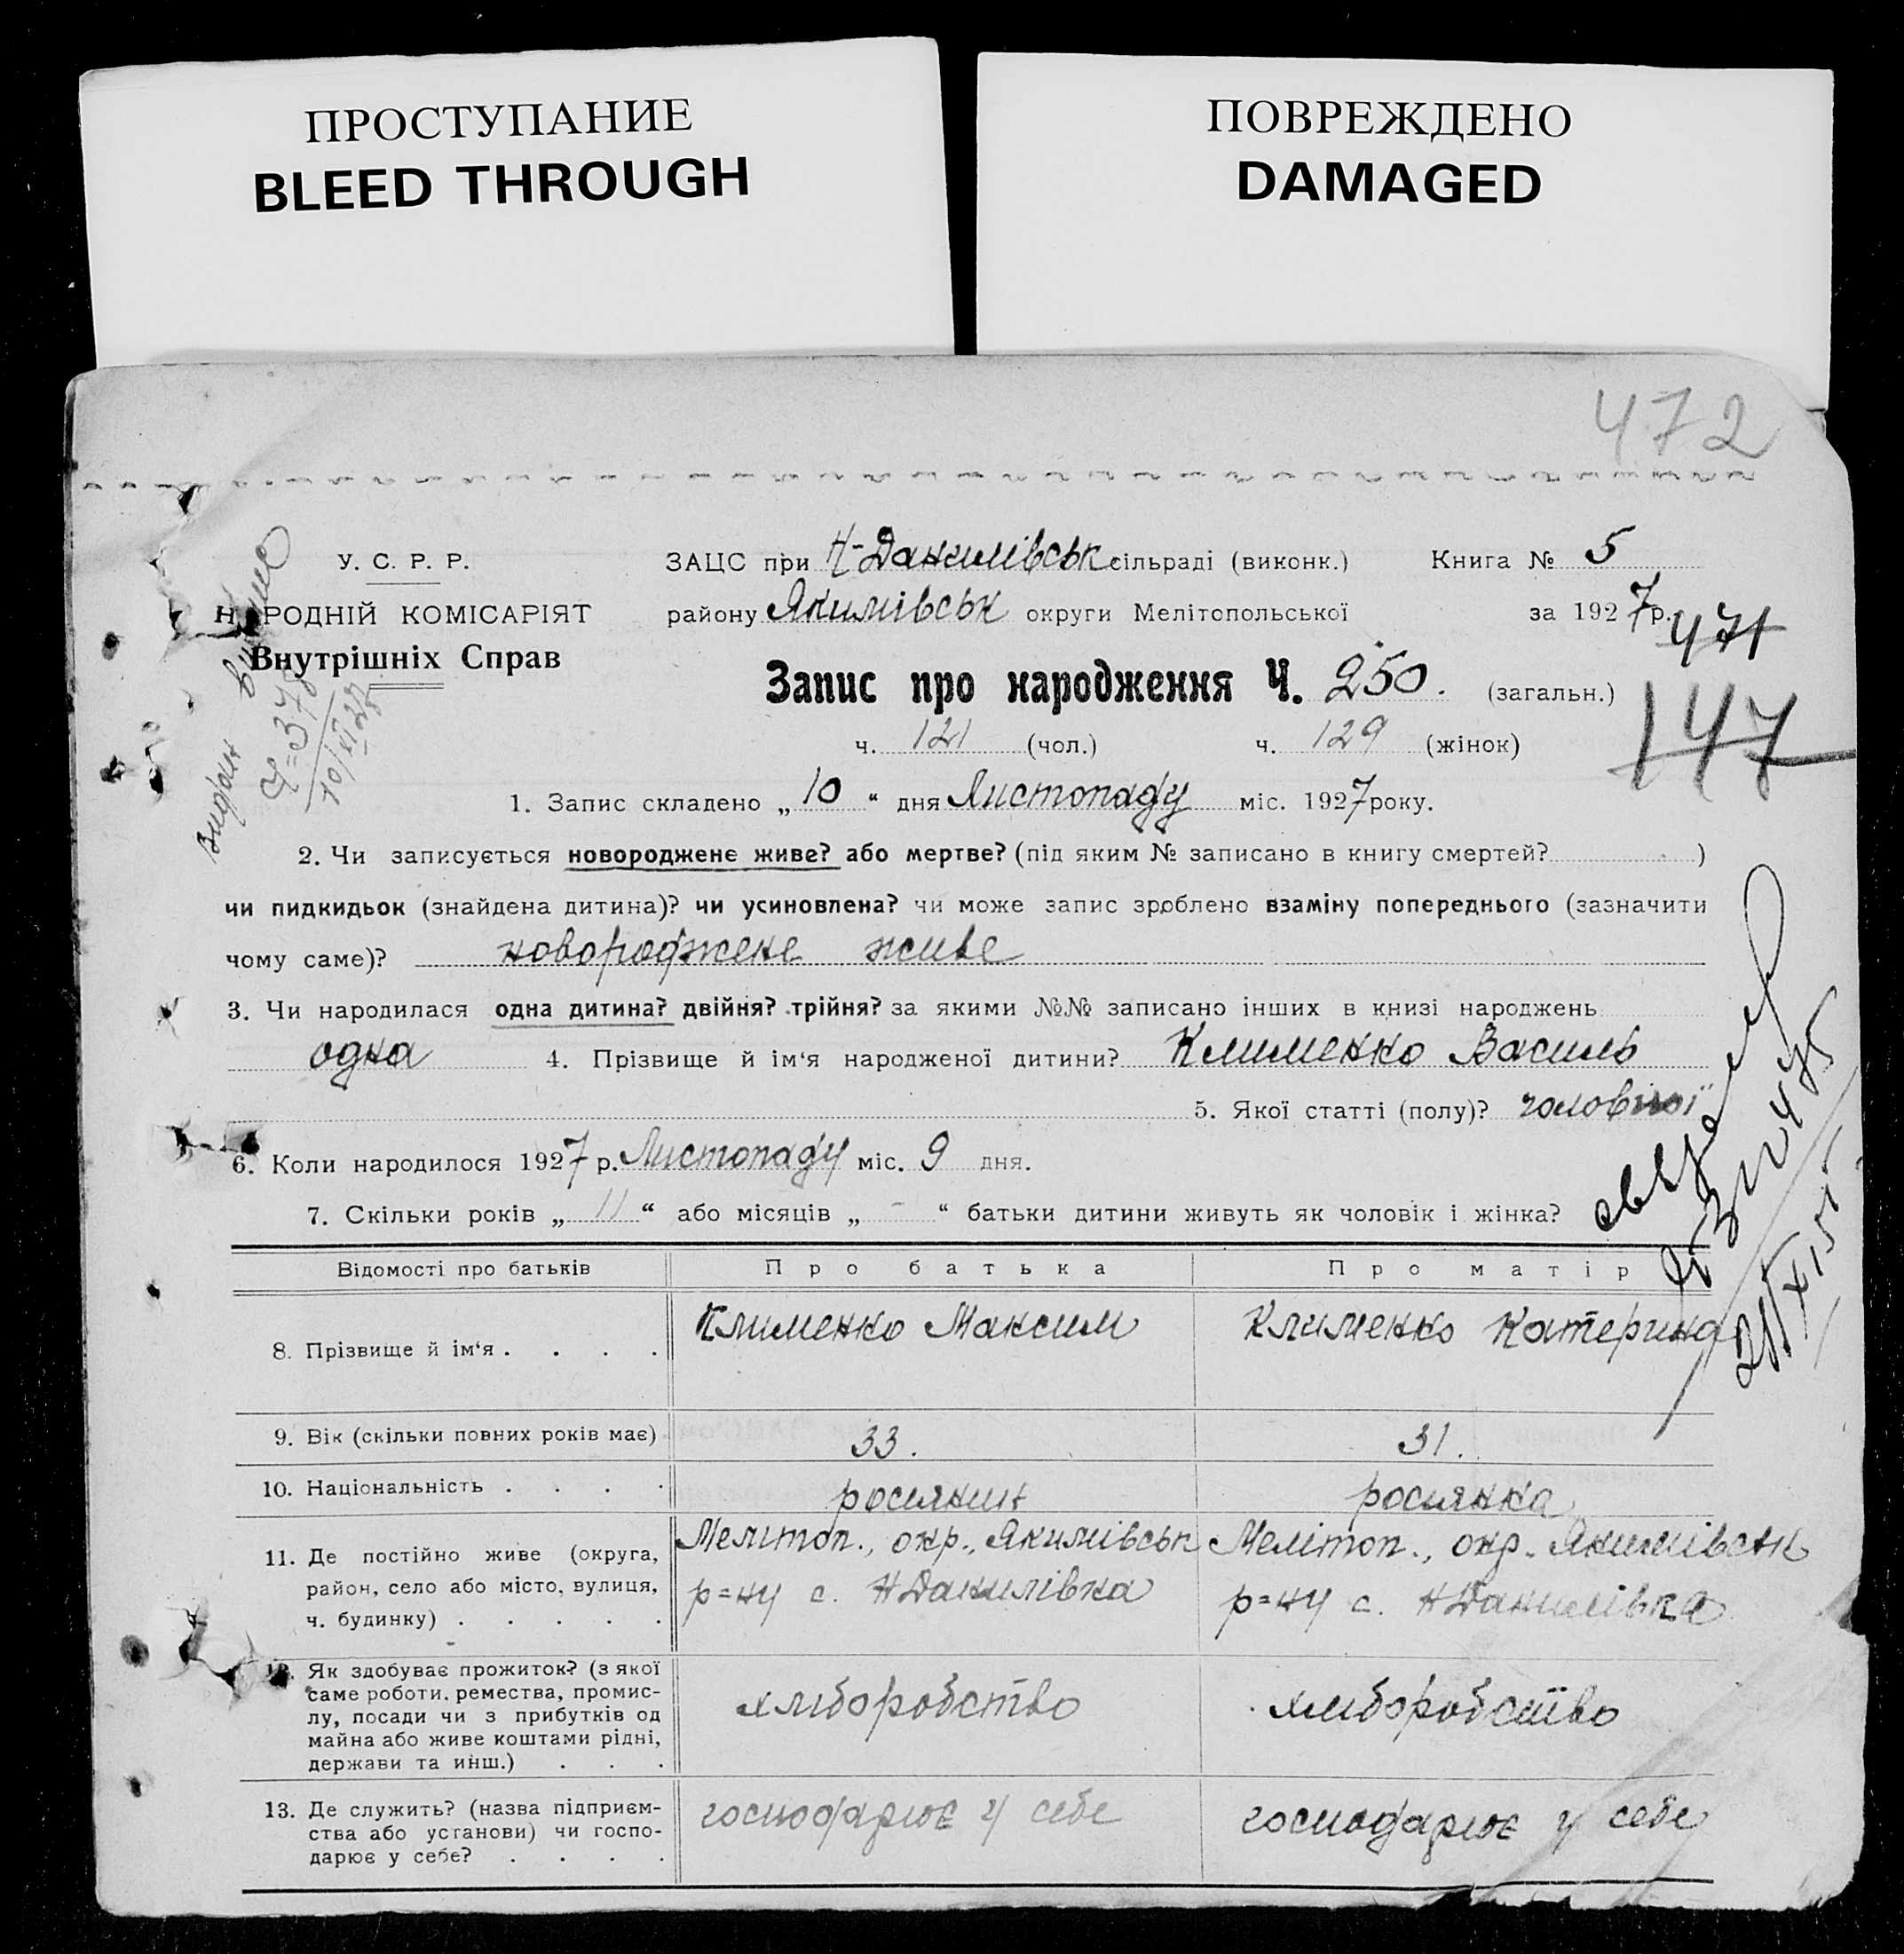 ПРОСТУПАНИЕ
BLEED THROUGH
ПОВРЕЖДЕНО
DAMAGED
472
У. С. Р. Р.
НАРОДНІЙ КОМІСАРІЯТ
Внутрішніх Справ
ЗАЦС при Н-Данилівськ сільраді (виконк.) Книга № 5
району Якимівськ округи Мелітопольської за 1927 р.
471
Запис про народження Ч. 250. (загальн.)
147
ч. 121 (чол.) ч. 129 (жінок)
Видан
ч=378
10/XI 27
1. Запис складено „10“ дня Листопаду міс. 1927 року.
2. Чи записується новороджене живе? або мертве? (під яким № записано в книгу смертей? )
чи пидкидьок (знайдена дитина)? чи усиновлена? чи може запис зроблено взаміну попереднього (зазначити
чому саме)? новороджене живе
3. Чи народилася одна дитина? двійня? трійня? за якими №№ записано інших в книзі народжень
одна 4. Прізвище й ім'я народженої дитини? Клименко Василь
5. Якої статті (полу)? чоловічої
6. Коли народилося 1927 р. Листопаду міс. 9 дня.
7. Скільки років „11“ або місяців „-“ батьки дитини живуть як чоловік і жінка?
Відомості про батьків Про батька Про матір
8. Прізвище й ім‘я . . . . Клименко Максим Клименко Катерина
9. Вік (скільки повних років має) 33. 31.
10. Національність . . . . росиянин росиянка
11. Де постійно живе (округа,
район, село або місто, вулиця,
ч. будинку) . . . . .
Мелітоп., окр., Якимівськ
р=ну с. НДанилівка
Мелітоп., окр. Якимівськ
р=ну с. НДанилівка
12. Як здобуває прожиток? (з якої
саме роботи, ремества, промис-
лу, посади чи з прибутків од
майна або живе коштами рідні,
держави та инш.) . . .
хліборобство
хліборобство
13. Де служить? (назва підприєм-
ства або установи) чи госпо-
дарює у себе? . . . .
господарює у себе
господарює у себе